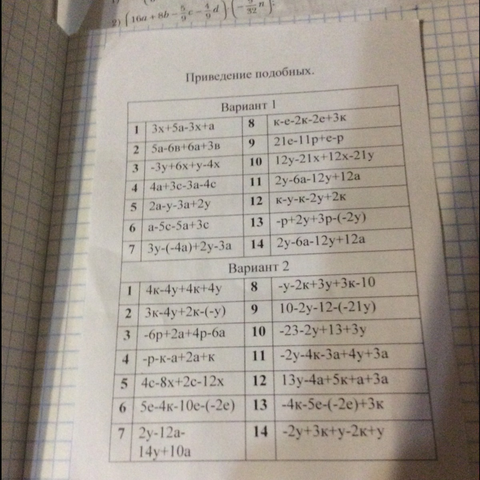 2) (16a + 8b - 5/9 c - 4/9 d) · (- 9/32 n).
Приведение подобных.
Вариант 1
1 3х+5а-3х+а 8 к-е-2к-2е+3к
2 5а-6в+6а+3в 9 21е-11р+е-р
3 -3у+6х+у-4х 10 12у-21х+12х-21у
4 4а+3с-3а-4с 11 2у-6а-12у+12а
5 2а-у-3а+2у 12 к-у-к-2у+2к
6 а-5с-5а+3с 13 -р+2у+3р-(-2у)
7 3у-(-4а)+2у-3а 14 2у-6а-12у+12а
Вариант 2
1 4к-4у+4к+4у 8 -у-2к+3у+3к-10
2 3к-4у+2к-(-у) 9 10-2у-12-(-21у)
3 -6р+2а+4р-6а 10 -23-2у+13+3у
4 -р-к-а+2а+к 11 -2у-4к-3а+4у+3а
5 4с-8х+2с-12х 12 13у-4а+5к+а+3а
6 5е-4к-10е-(-2е) 13 -4к-5е-(-2е)+3к
7 2у-12а- 14 -2у+3к+у-2к+у
14у+10а